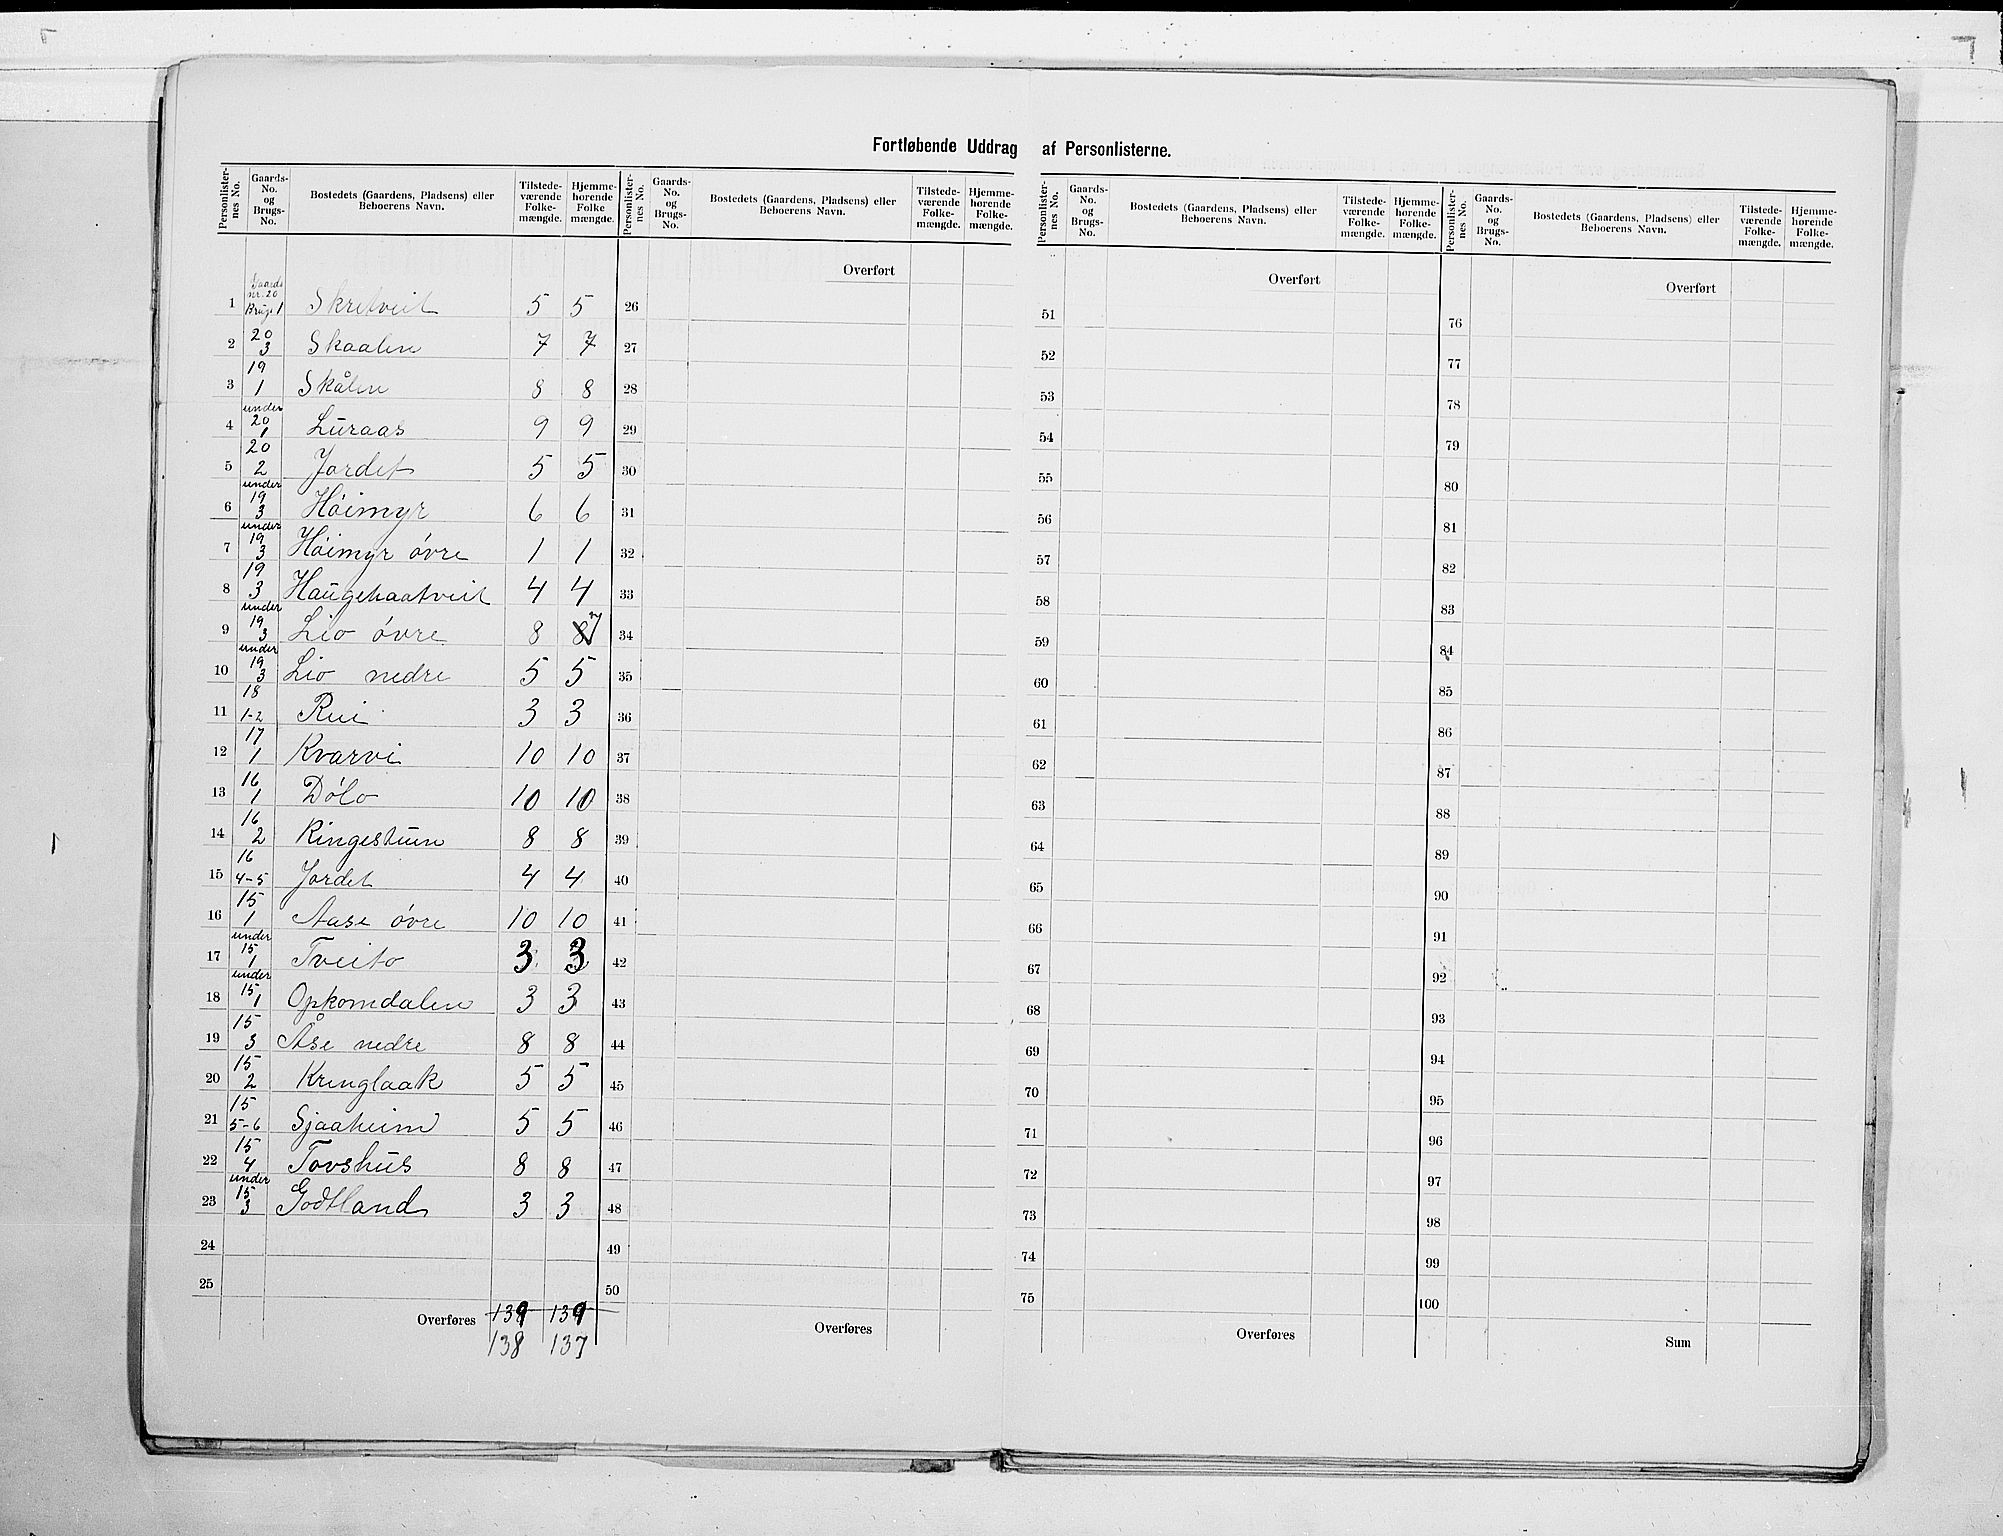 Fortløbende Uddrag af Personlisterne.
Personlister-nes No. Gaards-No. og Brugs-No. Bostedets (Gaardens, Pladsens) eller Beboerens Navn. Tilstede-værende Folke-mængde. Hjemme-hørende Folke mængde.
Personlister-nes No. Gaards-No. og Brugs-No. Bostedets (Gaardens, Pladsens) eller Beboerens Navn. Tilstede-værende Folke-mængde. Hjemme-hørende Folke-mængde.
Personlister-nes No. Gaards-No. og Brugs-No. Bostedets (Gaardens, Pladsens) eller Beboerens Navn. Tilstede-værende Folke-mængde. Hjemme-hørende Folke-mængde.
Personlister-nes No. Gaards-No. og Brugs-No. Bostedets (Gaardens, Pladsens) eller Beboerens Navn. Tilstede-værende Folke-mængde. Hjemme-hørende Folke-mængde.
1 Gaards nr. 20 Brugs 1 Skretveit 5 5
2 20 3 Skaalen 7 7
3 19 1 Skålen 8 8
4 under 20 1 Luraas 9 9
5 20 2 Jordet 5 5
6 under 19 3 Høimyr 6 6
7 under 19 3 Høimyr øvre 1 1
8 19 3 Haugehaatveit 4 4
9 under 19 3 Lio øvre 8 8 7
10 under 19 3 Lio nedre 5 5
11 18 1-2 Rui 3 3
12 17 1 Kvarvi 10 10
13 16 1 Dølo 10 10
14 16 2 Ringestuen 8 8
15 16 4-5 Jordet 4 4
16 15 1 Aase øvre 10 10
17 under 15 1 Tveito 3 3
18 under 15 1 Opkomdalen 3 3
19 15 3 Åse nedre 8 8
20 15 2 Kringlaak 5 5
21 15 5-6 Sjaaheim 5 5
22 15 4 Tovshus 8 8
23 under 15 3 Godtland 3 3
24
25
Overføres 139 139
138 137
Overført
26
27
28
29
30
31
32
33
34
35
36
37
38
39
40
41
42
43
44
45
46
47
48
49
50
Overføres
Overført
51
52
53
54
55
56
57
58
59
60
61
62
63
64
65
66
67
68
69
70
71
72
73
74
75
Overføres
Overført
76
77
78
79
80
81
82
83
84
85
86
87
88
89
90
91
92
93
94
95
96
97
98
99
100
Sum